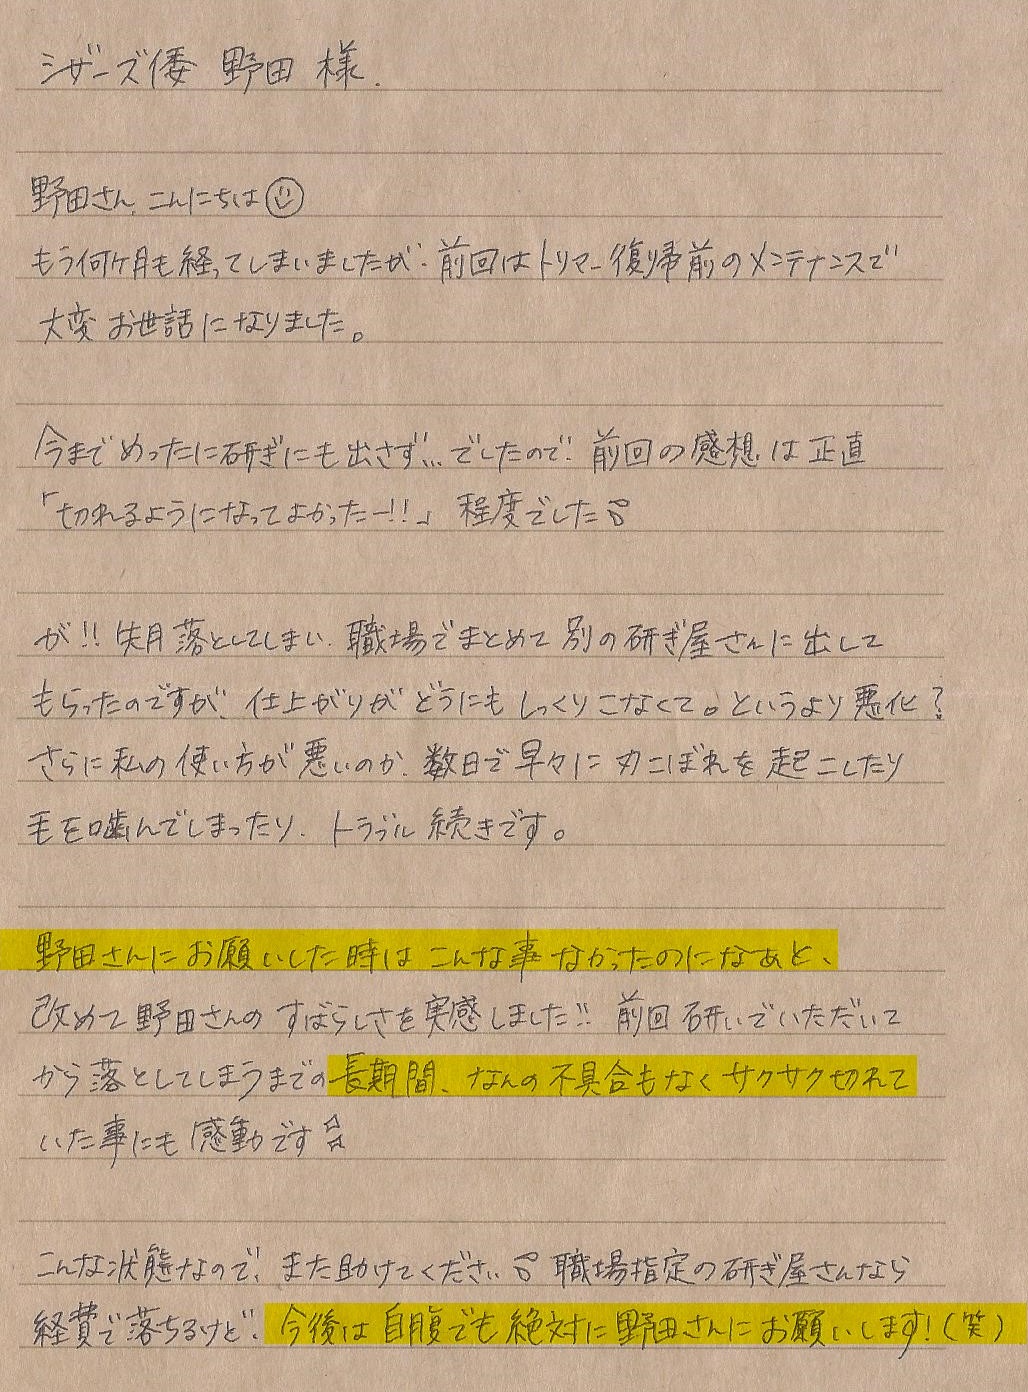 シザーズ倭 野田 様.
野田さん、こんにちは
もう何ヶ月も経ってしまいましたが、前回はトリマー復帰前のメンテナンスで
大変お世話になりました。
今までめったに研ぎにも出さず…でしたので、前回の感想は正直
「切れるようになってよかったー!!」程度でした
が!! 先月落としてしまい、職場でまとめて別の研ぎ屋さんに出して
もらったのですが、仕上がりがどうにもしっくりこなくて。というより悪化?
さらに私の使い方が悪いのか、数日で早々に刃こぼれを起こしたり
毛を噛んでしまったり、トラブル続きです。
野田さんにお願いした時はこんな事なかったのになあと、
改めて野田さんのすばらしさを実感しました!! 前回研いでいただいて
から落としてしまうまでの長期間、なんの不具合もなくサクサク切れて
いた事にも感動です☆☆
こんな状態なので、また助けてください 職場指定の研ぎ屋さんなら
経費で落ちるけど、今後は自腹でも絶対に野田さんにお願いします!(笑)